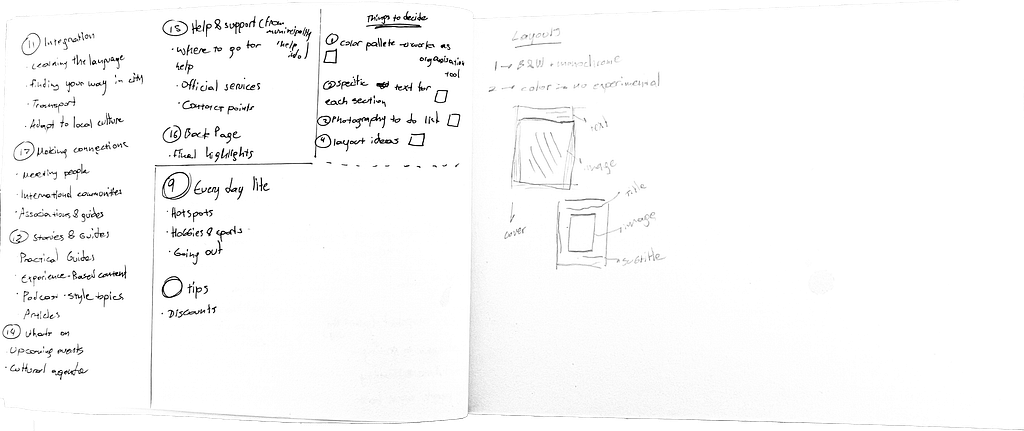 11 Integration
· Learning the language
· finding your way in city
· Transport
· Adapt to local culture
Making connections
· meeting people
· International communities
· Associations & guides
Stories & Guides
Practical Guides
· Experience-Based content
· Podcast-style topics
Articles
14 What's on
Upcoming events
· Cultural agenda
15 Help & support (from municipality
· Where to go for help
· Official services
· Contact points
16 Back Page
· Final highlights
9 Every day life
· Hotspots
· Hobbies & sports
· Going out
tips
· Discounts
Things to decide
1 color pallete → works as
organisation
tool
2 specific text for
each section
3 Photography to do list
4 layout ideas
Layouts
1 → B&W - monochrome
2 → color experimental
text
image
cover
title
image
subtitle